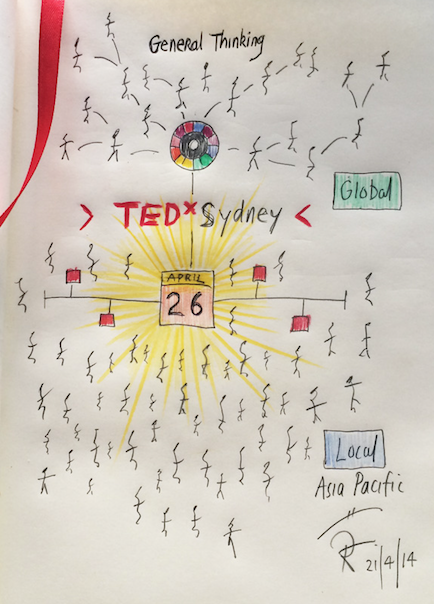 General Thinking
Global
> TEDx Sydney <
APRIL
26
Local
Asia Pacific
21/4/14